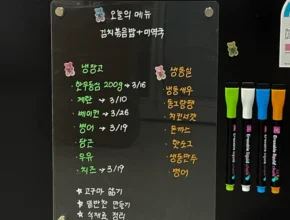 오늘의 메뉴
김치볶음밥 + 미역국
냉장고
• 한우등심 200g → 3/16
• 계란 → 3/10
• 베이컨 → 3/26
• 뱅어 → 3/19
• 당근
• 우유
• 치즈 → 3/19
냉동실
• 냉동새우
• 치킨너겟
• 돈까스
• 핫도그
• 냉동만두
• 뱅어
☆ 고구마 삶기
☆ 식재료 정리